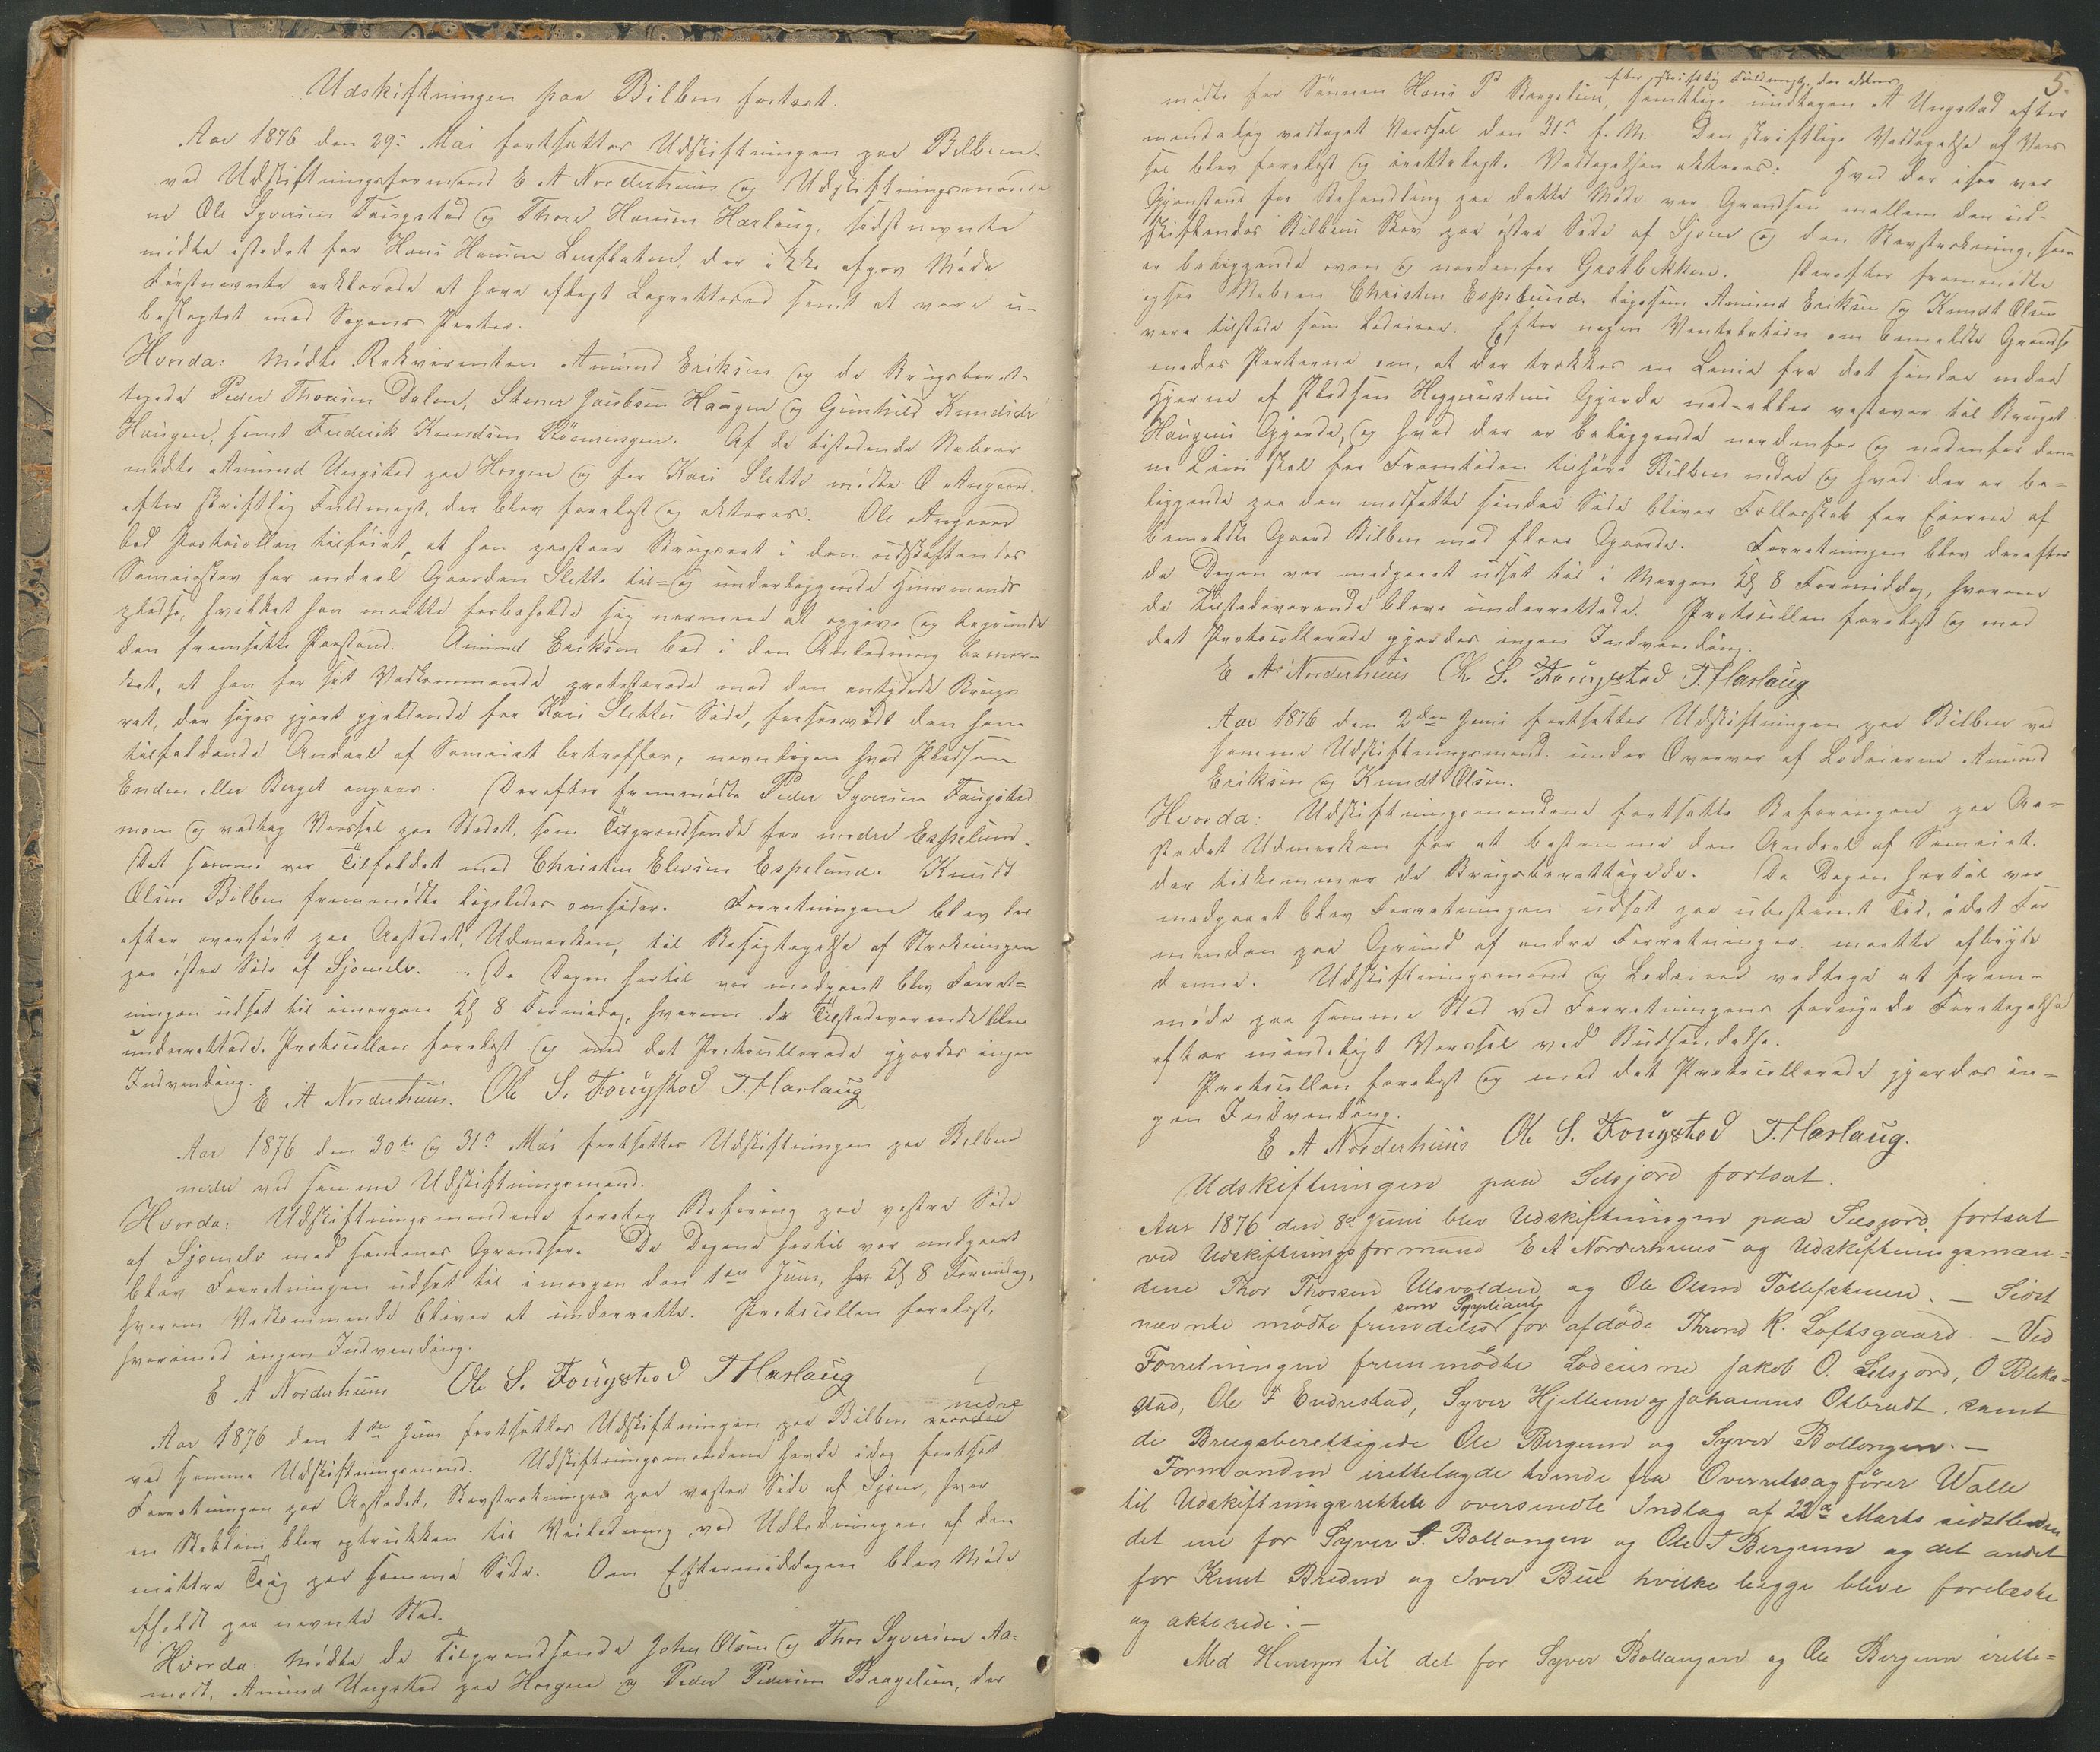 Udskiftningen paa Bilben fortsat.
Aar 1876 den 29de Mai fortsattes Udskiftningen paa Bilben
ved Udskiftningsformand E A Norderhuus og Udskiftningsmænde-
ne Ole Syversen Fougstad og Thord Hansen Harlaug, sidstnævnte
mødte istedet for Hans Hansen, der ikke afgav Møde
Førstnævnte erklærede at have aflagt Lagrettesed samt at være u-
beslægtet med Sagens Parter.
Hvorda: Mødte Rekvirenten Amund Eriksen og de Brugsberet-
tigede Peder Thoresen Dalen, Stener Jacobsen Haugen og Gunhild Knudsdr
Haugen, samt Frederik Knudsen. Af de tilstedende Naboer
mødte Amund Ungstad paa Horgen og for Kari Slette mødte O Angaard
efter skriftlig Fuldmagt, der blev forelagt og akteres. Ole Angaard
bad Protocollen tilført, at han paastaar Brugsret i den udskiftendes
Sameieskov for endeel Gaarden Slette til- og underliggende Huusmands
pladse, hvilket han maatte forbeholde sig nærmere at opgive og begrunde
den fremsatte Paastand. Amund Eriksen bad i den Anledning bemær-
ket, at han for sit Vedkommende protesterede mod den antydede Brugs
ret, der søges gjort gjældende fra Kari Slettes Side, forsaavidt den ham
tilfaldende Andeel af Sameiet betræffer, navnligen hvad Pladsen
Enden eller Berget angaar. Derefter fremmødte Peder Syversen Fougstad
moen og vedtog Varsel paa Stedet, som Tilgrændsende for nordre Espelund.
Det samme var Tilfældet med Christen Elevsen Espelund. Knudt
Olsen Bilben fremmødte ligeledes omsider. Forretningen blev der
efter overført paa Aastedet, Udmarken, til Besigtigelse af Strækningen
paa østre Side af Sjoneelv. Da Dagen hertil var medgaaet blev Forret-
ningen udsat til imorgen Kl 8 Formidag, hvorom de Tilstedeværende blev
underrettede. Protocollen forelæst og mod det Protocollerede gjordes ingen
Indvending.
E A Norderhuus. Ole S. Fougstad T. Harlaug
Aar 1876 den 30te og 31te Mai fortsattes Udskiftningen paa Bilben
nedre ved samme Udskiftningsmænd.
Hvorda: Udskiftningsmændene foretog Befaring paa vestre Side
af Sjoneelv med sammes Grændser. Da Dagene hertil var medgaaet
blev Forretningen udsat til imorgen den 1ste Juni, Kl 8 Formidag,
hvorom Vedkommende bliver at underrette. Protocollen forelæst,
hvorimod ingen Indvending.
E A Norderhuus Ole S. Fougstad T Harlaug
Aar 1876 den 1ste Juni fortsattes Udskiftningen paa Bilben nedre
ved samme Udskiftningsmænd. Udskiftningsmændene havde idag fortsat
Forretningen paa Aastedet, Skovstrækningen paa vestre Side af Sjoen, hvor
en Steklinie blev optrukken til Veiledning ved Udlodningen af den
mellem paa samme Side. Om Eftermiddagen blev Møde
afholdt paa nævnte Sted.
Hvorda: Mødte de Tilgrændsende John Olsen og Thor Syversen Aa-
modt, Amund Ungstad paa Horgen og Peder Pedersen Bragelien, der
5.
efter skriftlig Fuldmagt, der akteres
mødte for Sønnen Hans P Bragelien, samtlige undtagen A Ungstad efter
mundtlig vedtaget Varsel den 31te f. M. Den skriftlige Vedtagelse af Var-
sel blev forelæst og irettelagt. Vedtagelsen akteres: Hvad der især var
Gjenstand for Behandling paa dette Møde var Grændsen mellem den ud-
skiftendes Bilbens Skov paa østre Side af Sjoen og den Skovstrækning, som
er beliggende oven og nordenfor Grøtbekken. Derefter fremmødte
ogsaa Naboen Christen Espelund, ligesom Amund Eriksen og Knudt Olsen
vare tilstede som Lodeiere. Efter nogen Ventilation om bemeldte Grændse
enedes Parterne om, at der trækkes en Linie fra det søndre nedre
Hjørne af Pladsen Gjerde ned- eller vestover til Bruget
Haugens Gjerde, og hvad der er beliggende nordenfor og nedenfor den-
ne Linie skal for Fremtiden tilhøre Bilben nedre og hvad der er be-
liggende paa den modsatte søndre Side bliver Fællesskab for Eierne af
bemeldte Gaard Bilben med flere Gaarde. Forretningen blev derefter
da Dagen var medgaaet udsat til i Morgen Kl 8 Formiddag, hvorom
de Tilstedeværende bleve underrettede. Protocollen forelæst og mod
det Protocollerede gjordes ingen Indvending.
E A Norderhuus Ole S. Fougstad T. Harlaug
Aar 1876 den 2den Juni fortsattes Udskiftningen paa Bilben ved
samme Udskiftningsmænd under Overvær af Lodeierne Amund
Eriksen og Knudt Olsen.
Hvorda: Udskiftningsmændene fortsatte Befaringen paa Aa-
stedet Udmarken for at bestemme den Andeel af Sameiet.
der tilkommer de Brugsberettigede. Da Dagen hertil var
medgaaet blev Forretningen udsat paa ubestemt Tid, idet For
manden paa Grund af andre Forretninger maatte afbryde
denne. Udskiftningsmænd og Lodeiere vedtoge at frem-
møde paa samme Sted ved Forretningens fornyede Foretagelse
efter mundtligt Varsel ved Budsendelse.
Protocollen forelæst og mod det Protocollerede gjordes in-
gen Indvending.
E A Norderhuus Ole S. Fougstad T. Harlaug.
Udskiftningen paa Selsjord fortsat.
Aar 1876 den 8de Juni blev Udskiftningen paa Selsjord fortsat
ved Udskiftningsformand E A Norderhuus og Udskiftningsmæn-
dene Thor Thossen Ulsvolden og Ole Olsen Tollefshuus. – Sidst
som Suppliant
nævnte mødte fremdeles for afdøde Thrond K. Loftsgaard – Ved
Forretningen fremmødte Lodeierne Jakob O. Selsjord, O Bleka-
stad, Ole T Endrestad, Syver Hjelleun og Johannes Olbrudt samt
de Brugsberettigede Ole Bergum og Syver Bollongen. –
Formanden irettelagde tvende fra Overretssagfører Walle
til Udskiftningsretten oversendte Indlæg af 22de Marts sidstleden
det ene for Syver S. Bollangen og Ole T Bergum og det andet
for Knut Breden og Iver Bue hvilke begge bleve forelæste
og akterede. –
Med Hensyn til det for Syver Bollangen og Ole Bergum irette-